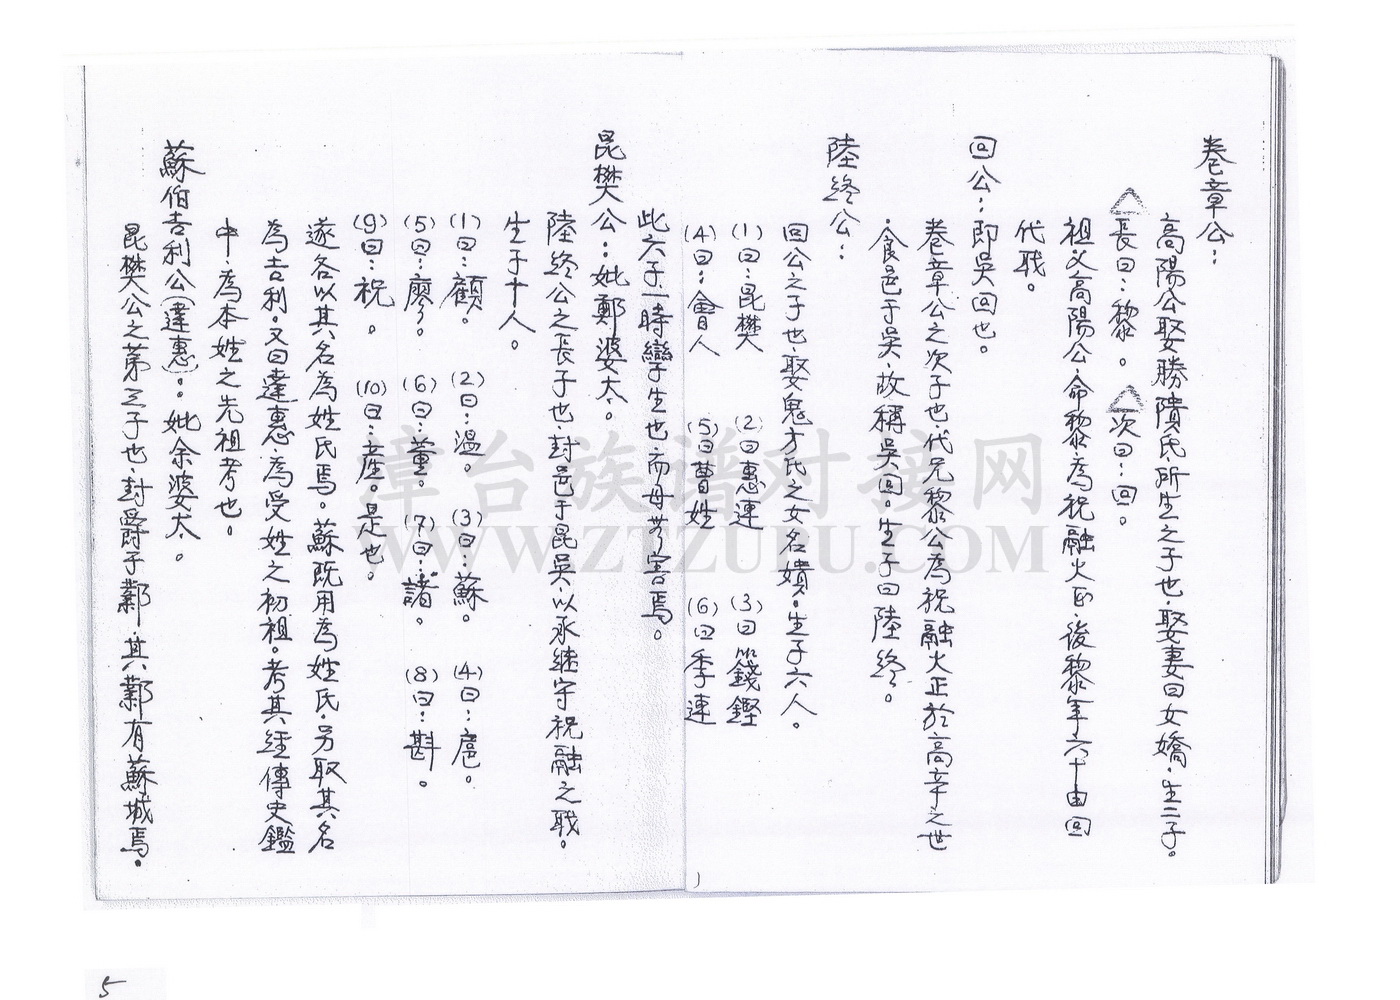 卷章公：
高陽公娶勝隤氏所生之子也、娶妻曰女嬌、生二子。
長曰：黎。 次曰：回。
祖父高陽公、命黎為祝融火正、後黎年六十由回
代職。
回公：即吳回也。
卷章公之次子也、代兄黎公為祝融火正於高辛之世
食邑于吳、故稱吳回。生子曰陸終。
陸終公：
回公之子也、娶鬼方氏之女名嬇。生子六人。
(1)曰：昆樊 (2)曰惠連 (3)曰籛鏗
(4)曰：會人 (5)曰曹姓 (6)曰季連
此六子一時孿生也、而母无害焉。
昆樊公：妣鄭婆太。
陸終公之長子也、封邑于昆吳、以承繼守祝融之職。
生子十人。
(1)曰：顧。 (2)曰：溫。 (3)曰：蘇。 (4)曰：扈。
(5)曰：廖。 (6)曰：董。 (7)曰：諸。 (8)曰：斟。
(9)曰：祝。 (10)曰：產。是也。
遂各以其名為姓氏焉。蘇既用為姓氏、另取其名
為吉利。又曰達惠、為受姓之初祖。考其經傳史鑑
中、為本姓之先祖考也。
蘇伯吉利公(達惠)。妣余婆太。
昆樊公之第三子也、封爵于鄴、其鄴有蘇城焉。
漳台族谱对接网
WWW.ZTZUPU.COM
5